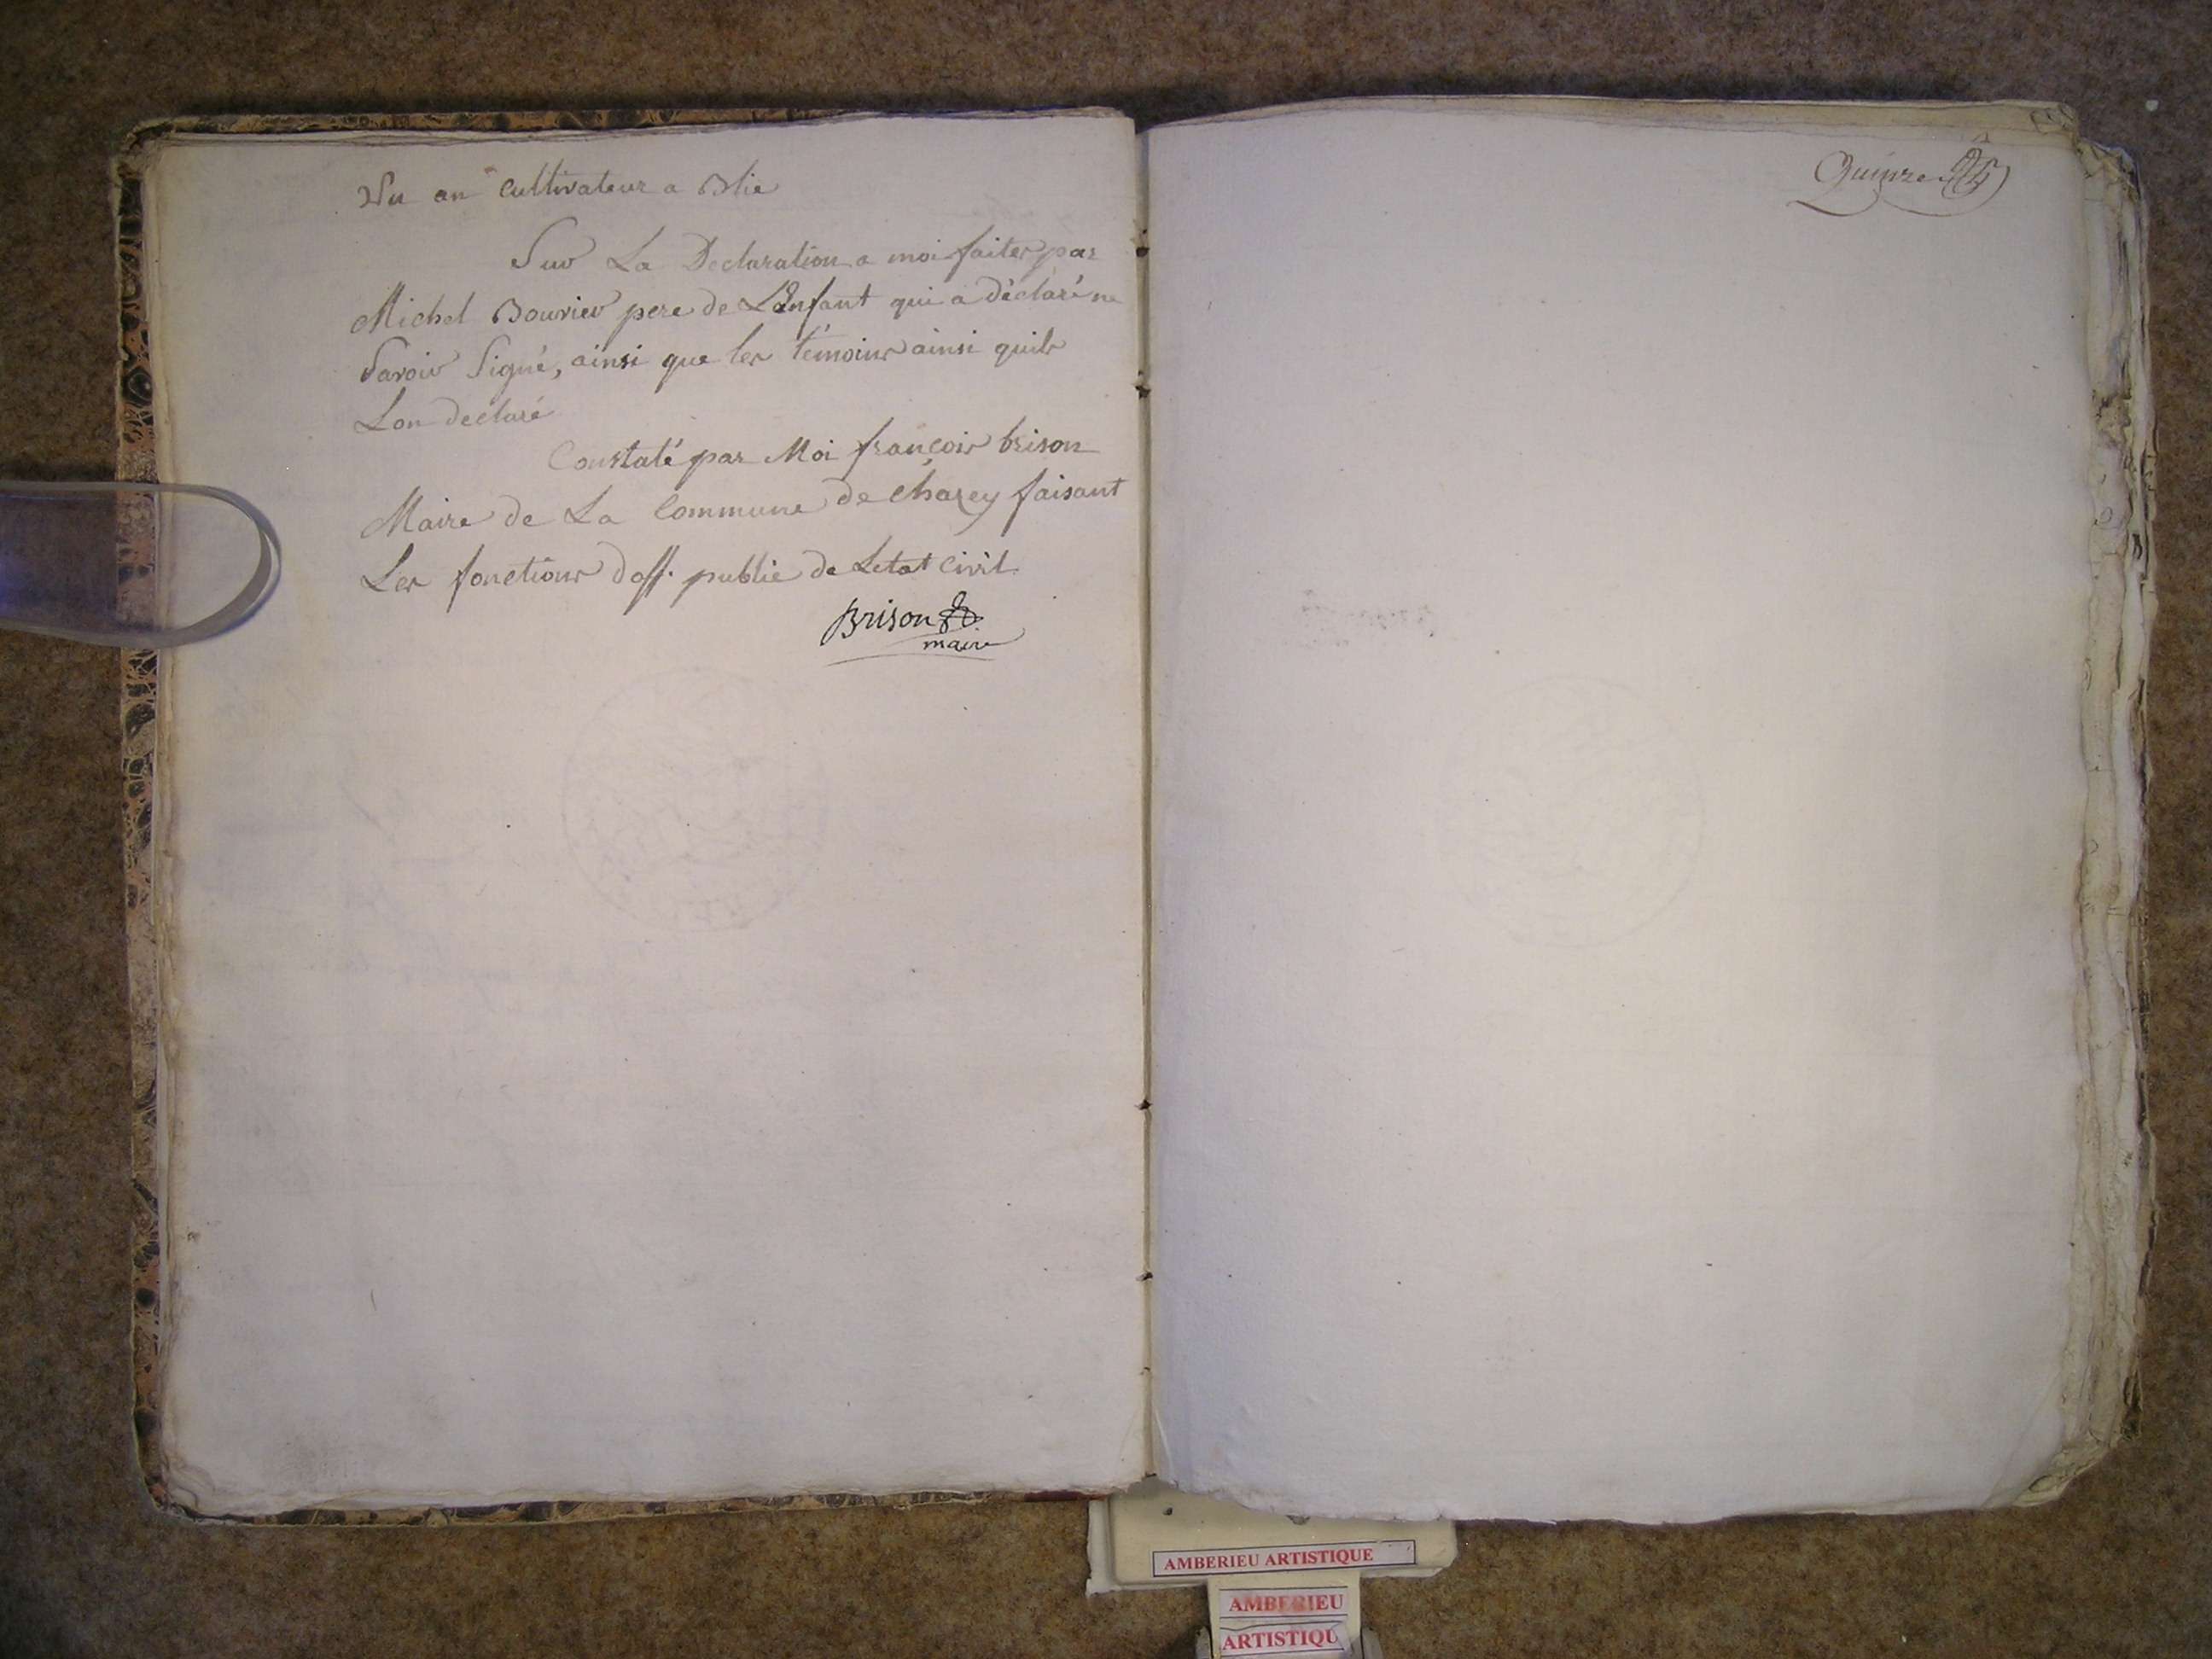 Un an cultivateur a Blie
Sur La Declaration a moi faites par
Michel Bouvier pere de L'Enfant qui a déclaré ne
Savoir Signé, ainsi que les témoins ainsi quils
Lon declaré
Constaté par Moi françois brison
Maire de La Commune de Chazey faisant
Les fonctions d'off. public de Letat Civil
Brison
maire
Quinze
AMBERIEU ARTISTIQUE
AMBERIEU
ARTISTIQU